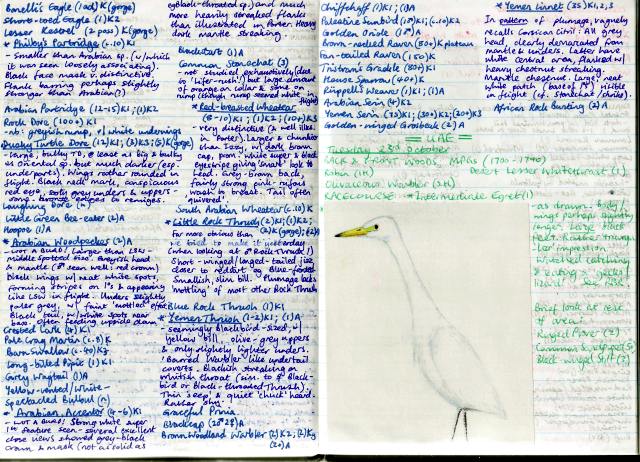 Bonelli's Eagle (1ad) K(gorge)
Short-toed Eagle (1) K2
Lesser Kestrel (2 pass) K(gorge)
* Philby's Partridge (c.10) K1
- Smaller than Arabian sp. (w/which
it was seen loosely associating).
Black face mask v. distinctive.
Flank barring perhaps slightly
stronger than Arabian(?)
Arabian Partridge (12-15) K1; (1) K2
Rock Dove (1000) K1
- nb: greyish rump, w/ white underwings
Dusky Turtle Dove (12) K1; (3) K3; (5) K(gorge)
- large, bulky TD, @ least as big & bulky
as Oriental sp. but much darker (esp.
underparts). Wings rather rounded in
flight. Black neck mark, conspicuous
red eye, sooty grey under & upper-
some bronze edges to remiges.
Laughing Dove
Little Green Bee-eater (2) A
Hoopoe (1) A
* Arabian Woodpecker (2) A
Middle spotted size. Greyish head
& mantle (♂ seen well: red crown)
Black wings w/ neat white spots,
forming stripes on 1°s & appearing
like LSW in flight. Unders slightly
paler grey, w/ faint 'mottled' effect
Black tail, w/ white spots near
base, often feeding upside down
Crested Lark (4) K1
Pale Crag Martin (c.8) K
Barn Swallow (c.40) K3
Long-billed Pipit (1) K1
Grey Wagtail (1) A
Yellow-vented/White-
Spectacled Bulbul (∞)
* Arabian Accentor (4-6) K1
- NOT A DUDO! Strong white super
1st feature seen - several excellent
close views showed grey-black
crown & mask (not as solid as
eyeblack-throated sp.) and much
more heavily streaked flanks
than illustrated in PDR. Heavy
dark mantle streaking.
Blackstart (1) A
Common Stonechat (3)
- not studied exhaustively (due to
'lifer-rush!') but large amount
of orange on collar & some on
rump (though rump seemed white in flight)
* Red-breasted Wheatear
(8-10) K1; (1) K2; (10+) K3
- very distinctive (& well illus.
in Porter). Larger & chunkier
than Isab., w/ dark brown
cap, prom. white super & black
eyestripe giving 'smart' look to
head. Grey-brown back,
fairly strong pink-rufous
wash in breast. Tail often
'quivered'
South Arabian Wheatear (c.10) K
* Little Rock Thrush (2) K1; (1) K2;
Far more obvious than
we tried to make it yesterday
(when looking at ♂ Rock Thrush!)
Short-winged/longed-tailed jizz
closer to redstart or Blue-fronted.
Smallish, slim bill. Plumage lacks
'mottling' of most other Rock Thrush
Blue Rock Thrush (1) K1
* Yemen Thrush (1-2) K1; (1) A
- seemingly blackbird-sized, w/
yellow bill, olive-grey uppers
& only slightly lighter unders.
'Barred Warbler' like undertail
coverts. Blackish streaking on
whitish throat (sim. to ♀ Black-
bird or Black-throated Thrush).
Thin 'seep' & quiet 'chuck' heard.
Rather shy.
Graceful Prinia
Blackcap (20♂ 2♀) A
Brown Woodland Warbler (2) K2; (2) Kg
(20) A
Chiffchaff (1) K1; (1) A
Palestine Sunbird (1♂) K1; (c.10) K2
Golden Oriole (1♂) A
Brown-necked Raven (50) K plateau
Fan-tailed Raven (150) K
Tristram's Grackle (80) K
House Sparrow (400) K
Rüppell's Weaver (1) K1; (1) A
Arabian Serin (4) K2
Yemen Serin (75) K1; (30) K2; (200) K3
Golden-winged Grosbeak (2) A
* Yemen Linnet (35) K1,2,3
In pattern of plumage, vaguely
recalls Corsican Citril. All grey
head, clearly demarcated from
mantle & unders. Latter have
white central area, flanked w/
heavy chestnut streaking.
Mantle chestnut. Large, neat
white patch (base of 1°) visible
in flight (cf. Stonechat/shrike)
African Rock Bunting (2) A
UAE
Tuesday 23rd October
BACK & FRONT WOODS, MPGs (1700-1740)
Robin (1)H
Desert Lesser Whitethroat (1)
Olivaceous Warbler (2)H
RACECOURSE: * Intermediate Egret (1)
- as drawn. Body/
wings perhaps slightly
longer. Large black
feet. Rather tranquil
'look' impression
Watched catching
& eating a gecko/
lizard!
Brief look at rest
of area:
Ringed Plover (2)
Common Sandpiper (5)
Black-winged Stilt (2)